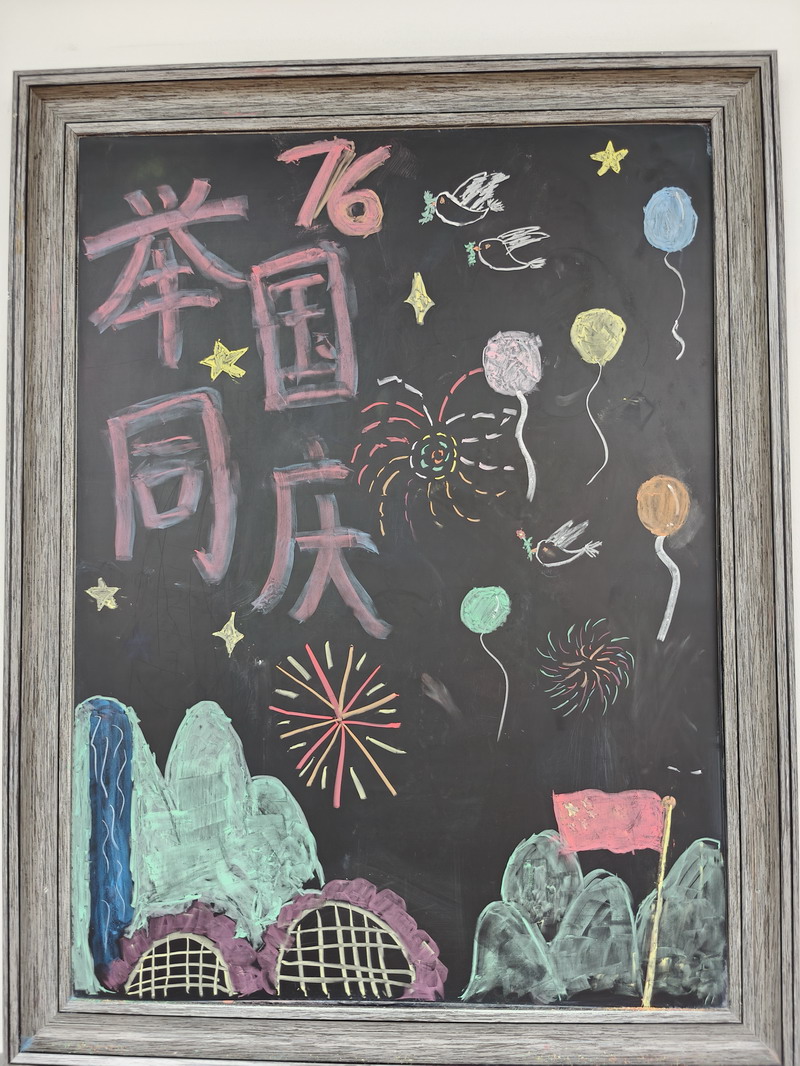 76
举国
同庆